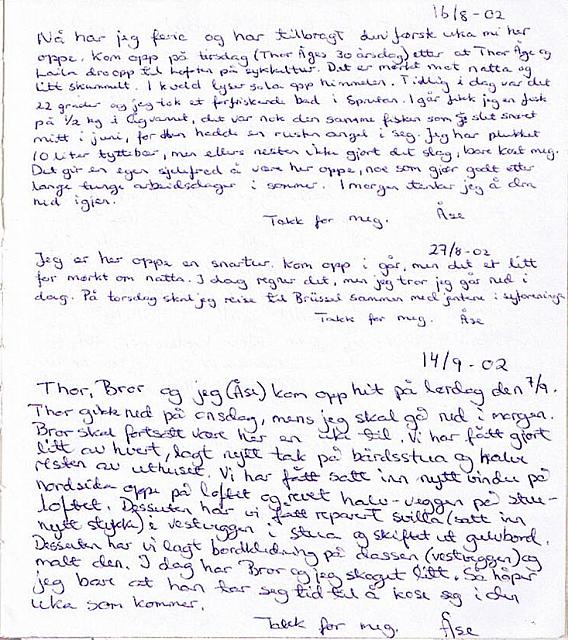 16/8-02
Nå har jeg ferie og har tilbragt den første uka mi her
oppe. Kom opp på tirsdag (Thor Åges 30 årsdag) etter at Thor Åge og
Laila dro opp til Loften på sykkeltur. Det er mørkt mot natta og
litt skummelt. I kveld lyser sola opp himmelen. Tidlig i dag var det
22 grader og jeg tok et forfriskende bad i Sputen. I går fikk jeg en fisk
på 1/2 kg i, det var nok den samme fisken som jeg slet snøret
mitt i juni, for den hadde en rusten angel i seg. Jeg har plukket
10 liter tyttebær, men ellers nesten ikke gjort det slag, bare kost meg.
Det gir en egen sjelefred å være her oppe, noe som gjør godt etter
lange tunge arbeidsdager i sommer. I morgen tenker jeg å dra
ned igjen.
Takk for meg. Åse
27/8-02
Jeg er her oppe en snartur. Kom opp i går, men det er litt
for mørkt om natta. I dag regner det, men jeg tror jeg går ned i
dag. På torsdag skal jeg reise til Brüssel sammen med jentene i syforeninga
Takk for meg. Åse
14/9-02
Thor, Bror og jeg (Åse) kom opp hit på lørdag den 7/9.
Thor gikk ned på onsdag, mens jeg skal gå ned i morgen.
Bror skal fortsatt være her en uke til. Vi har fått gjort
litt av hvert, lagt nytt tak på bårdsstua og halve
resten av uthuset. Vi har fått satt inn nytt vindu på
nordsida oppe på loftet og revet halv-veggen på stue-
loftet. Dessuten har vi fått reparert svilla (satt inn
nytt stykke) i vestveggen i stua og skiftet ut gulvbord.
Dessuten har vi lagt bordkledning på dassen (vestveggen) og
malt den. I dag har Bror og jeg skoget litt. Så håper
jeg bare at han tar seg tid til å kose seg i den
uka som kommer.
Takk for meg. Åse